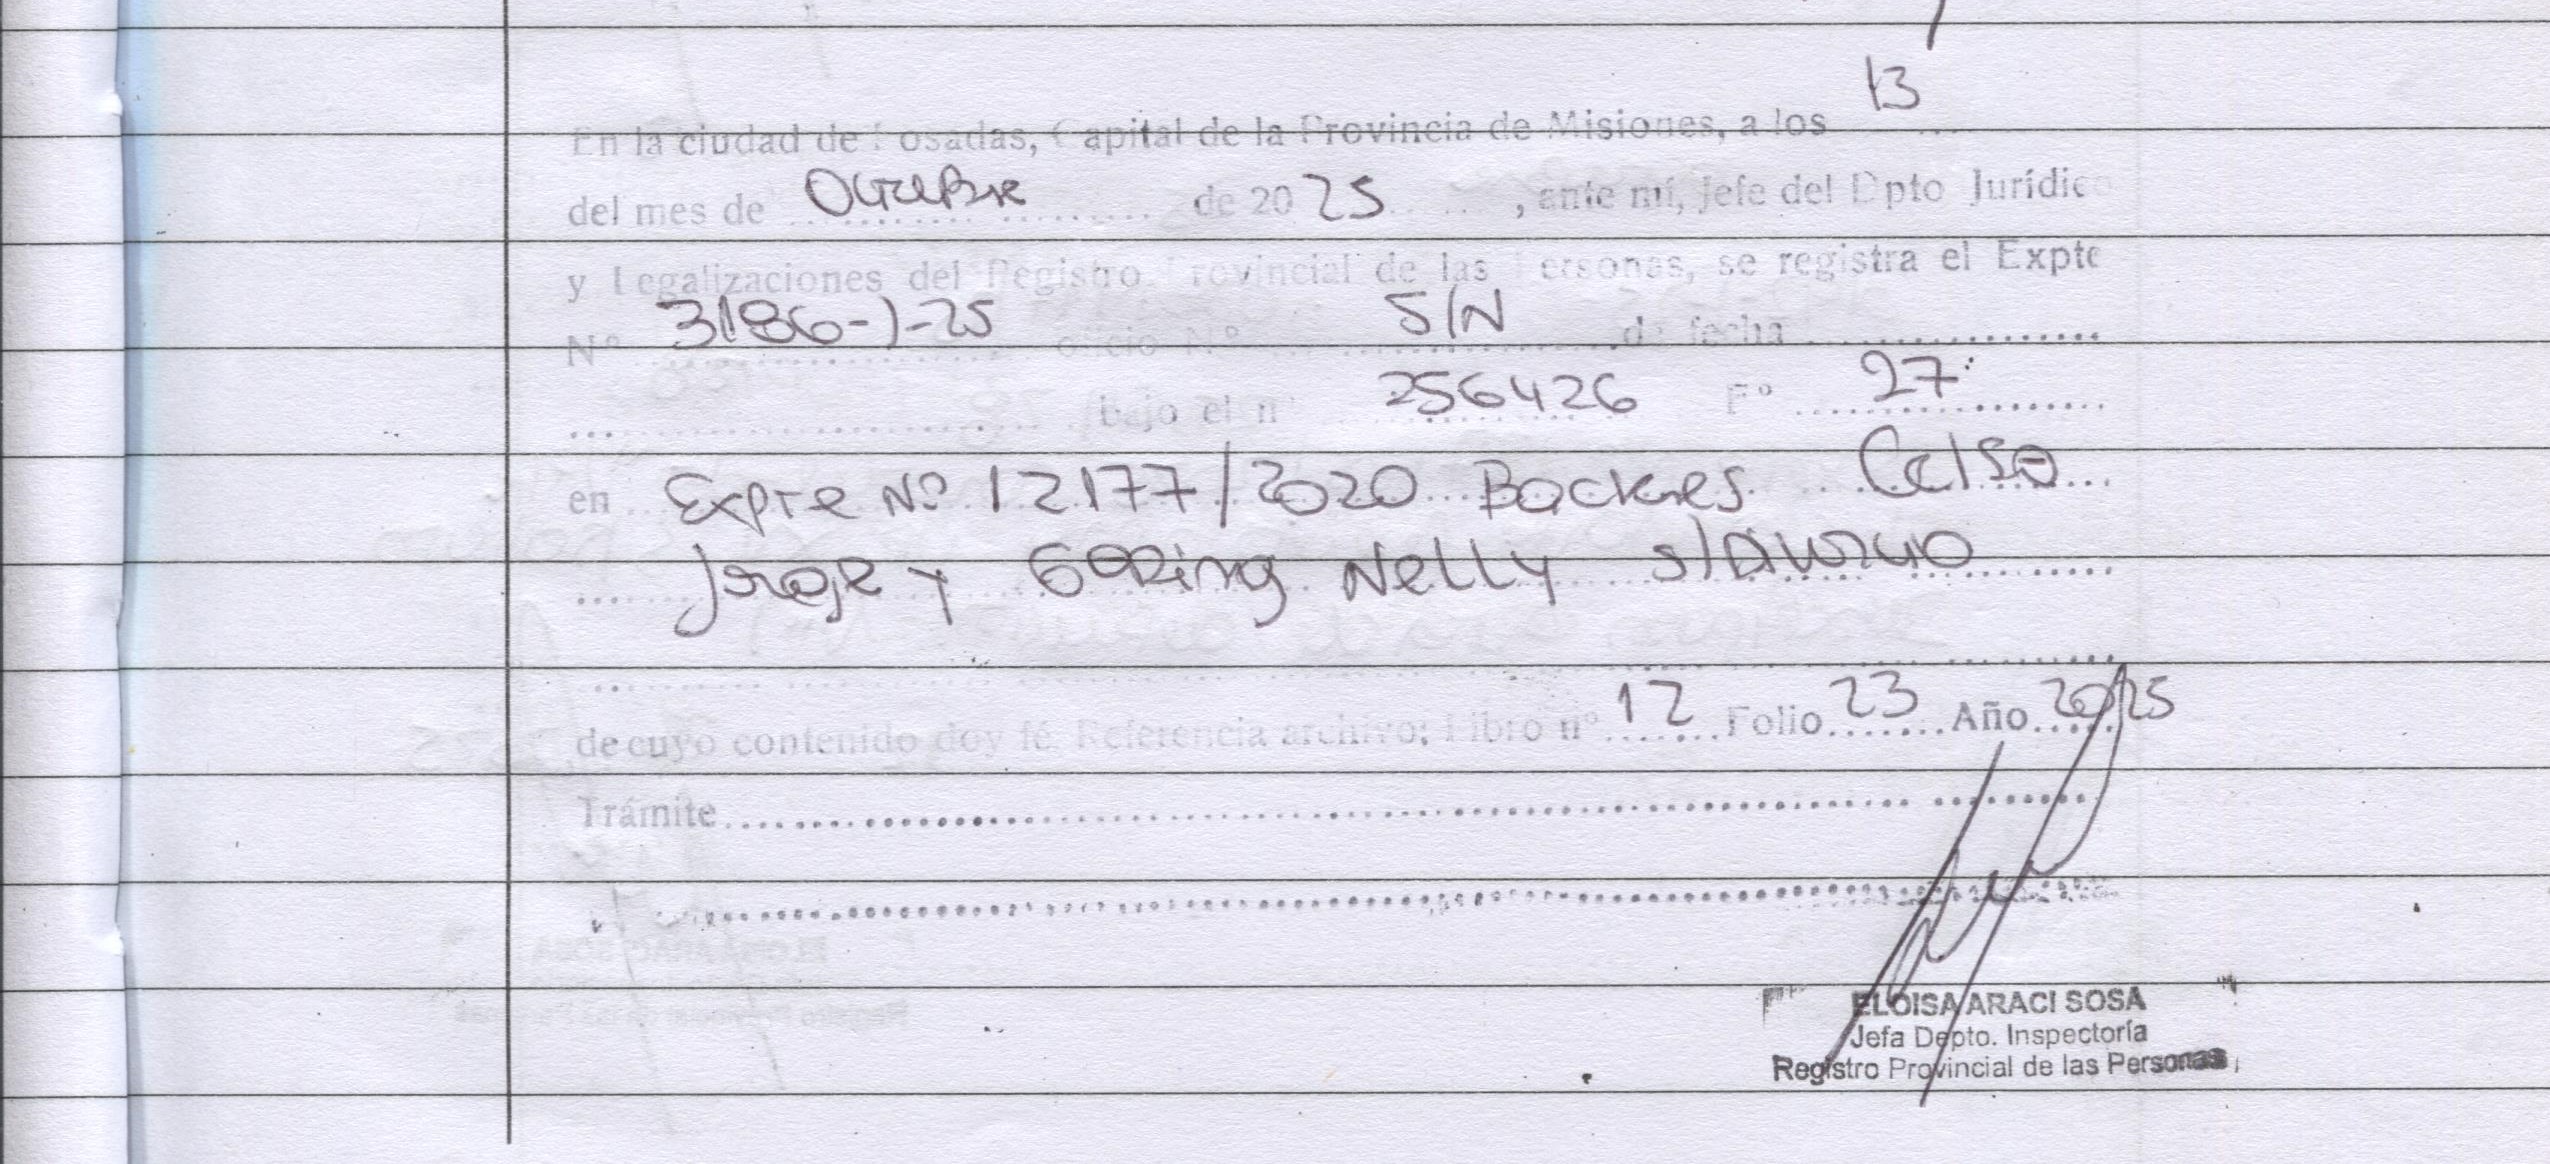 13
En la ciudad de Posadas, Capital de la Provincia de Misiones, a los
del mes de Octubre de 20 25, ante mí, Jefe del Dpto Jurídico
y Legalizaciones del Registro Provincial de las Personas, se registra el Expte
Nº 3186-J-25 oficio Nº S/N de fecha
bajo el nº 256426 Fº 27
en Expte Nº 12177/2020 Backes Celso
Jorge y Goring Nelly s/Divorcio
de cuyo contenido doy fé. Referencia archivo: Libro nº 12 Folio 23 Año 2025
Trámite
ELOISA ARACI SOSA
Jefa Depto. Inspectoría
Registro Provincial de las Personas